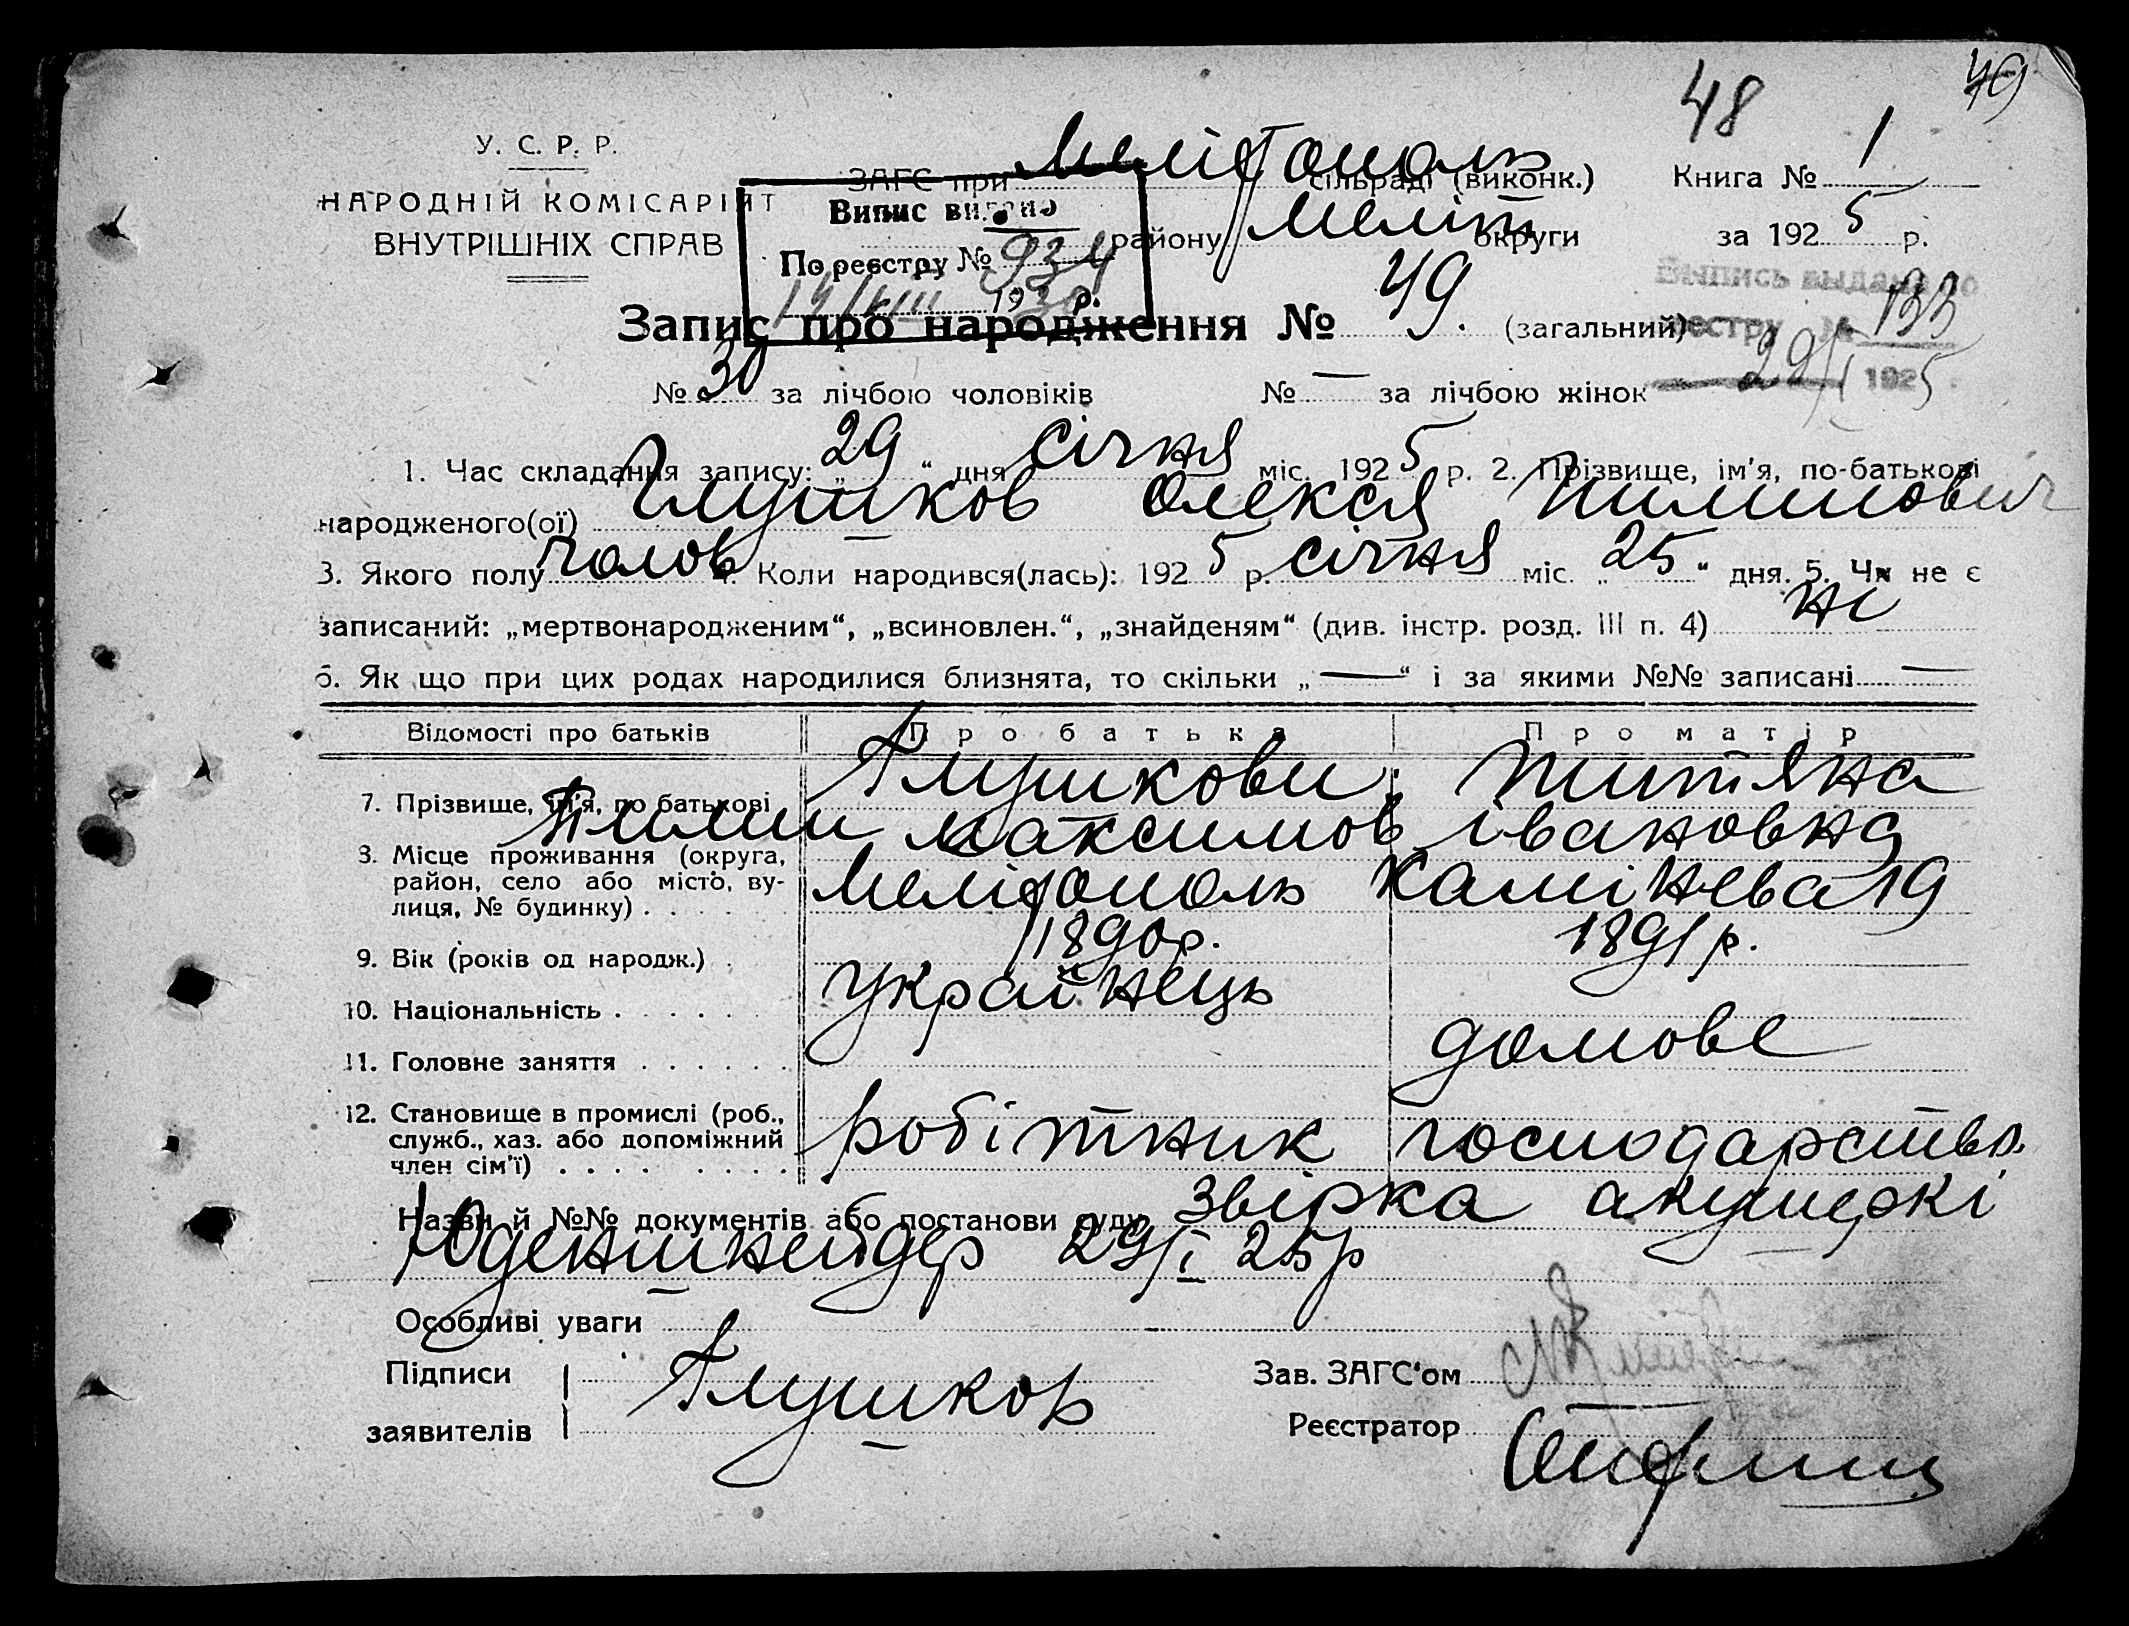 48
49
У. С. Р. Р.
НАРОДНІЙ КОМІСАРІЯТ
ВНУТРІШНІХ СПРАВ
ЗАГС при Мелітополь сільраді (виконк.)
району Меліт округи
Книга № 1
за 1925 р.
Випис видано
По реєстру № 934
1930 р.
Выпись выдана по
реестру № 133
29/I 1925
Запис про народження № 49. (загальний)
№ 30 за лічбою чоловіків № — за лічбою жінок
1. Час складання запису: „29“ дня січня міс. 1925 р. 2. Прізвище, ім'я, по-батькові
народженого(ої) Глушков Олекся Пимилович
3. Якого полу чолов 4. Коли народився(лась): 1925 р. січня міс. „25“ дня. 5. Чи не є
записаний: „мертвонародженим“, „всиновлен.“, „знайденям“ (див. інстр. розд. III п. 4) ні
6. Як що при цих родах народилися близнята, то скільки „—“ і за якими №№ записані —
Відомості про батьків Про батька Про матір
7. Прізвище, ім'я, по батькові Глушкови Титяна
Пимин Максимов Івановна
8. Місце проживання (округа, район, село або місто, ву-
лиця, № будинку) . . . . Мелітополь Камінева 19
9. Вік (років од народж.) . 1890р. 1891 р.
10. Національність . . . . . . Українець
11. Головне заняття . . . . . . домове
12. Становище в промислі (роб.,
служб., хаз. або допоміжний
член сім'ї) . . . . . . . . робітник господарство
Назви й №№ документів або постанови суду Звірка акушеркі
Юденшнейдер 29/I 25р
Особливі уваги
Підписи
заявителів Глушков
Зав. ЗАГС'ом
Реєстратор